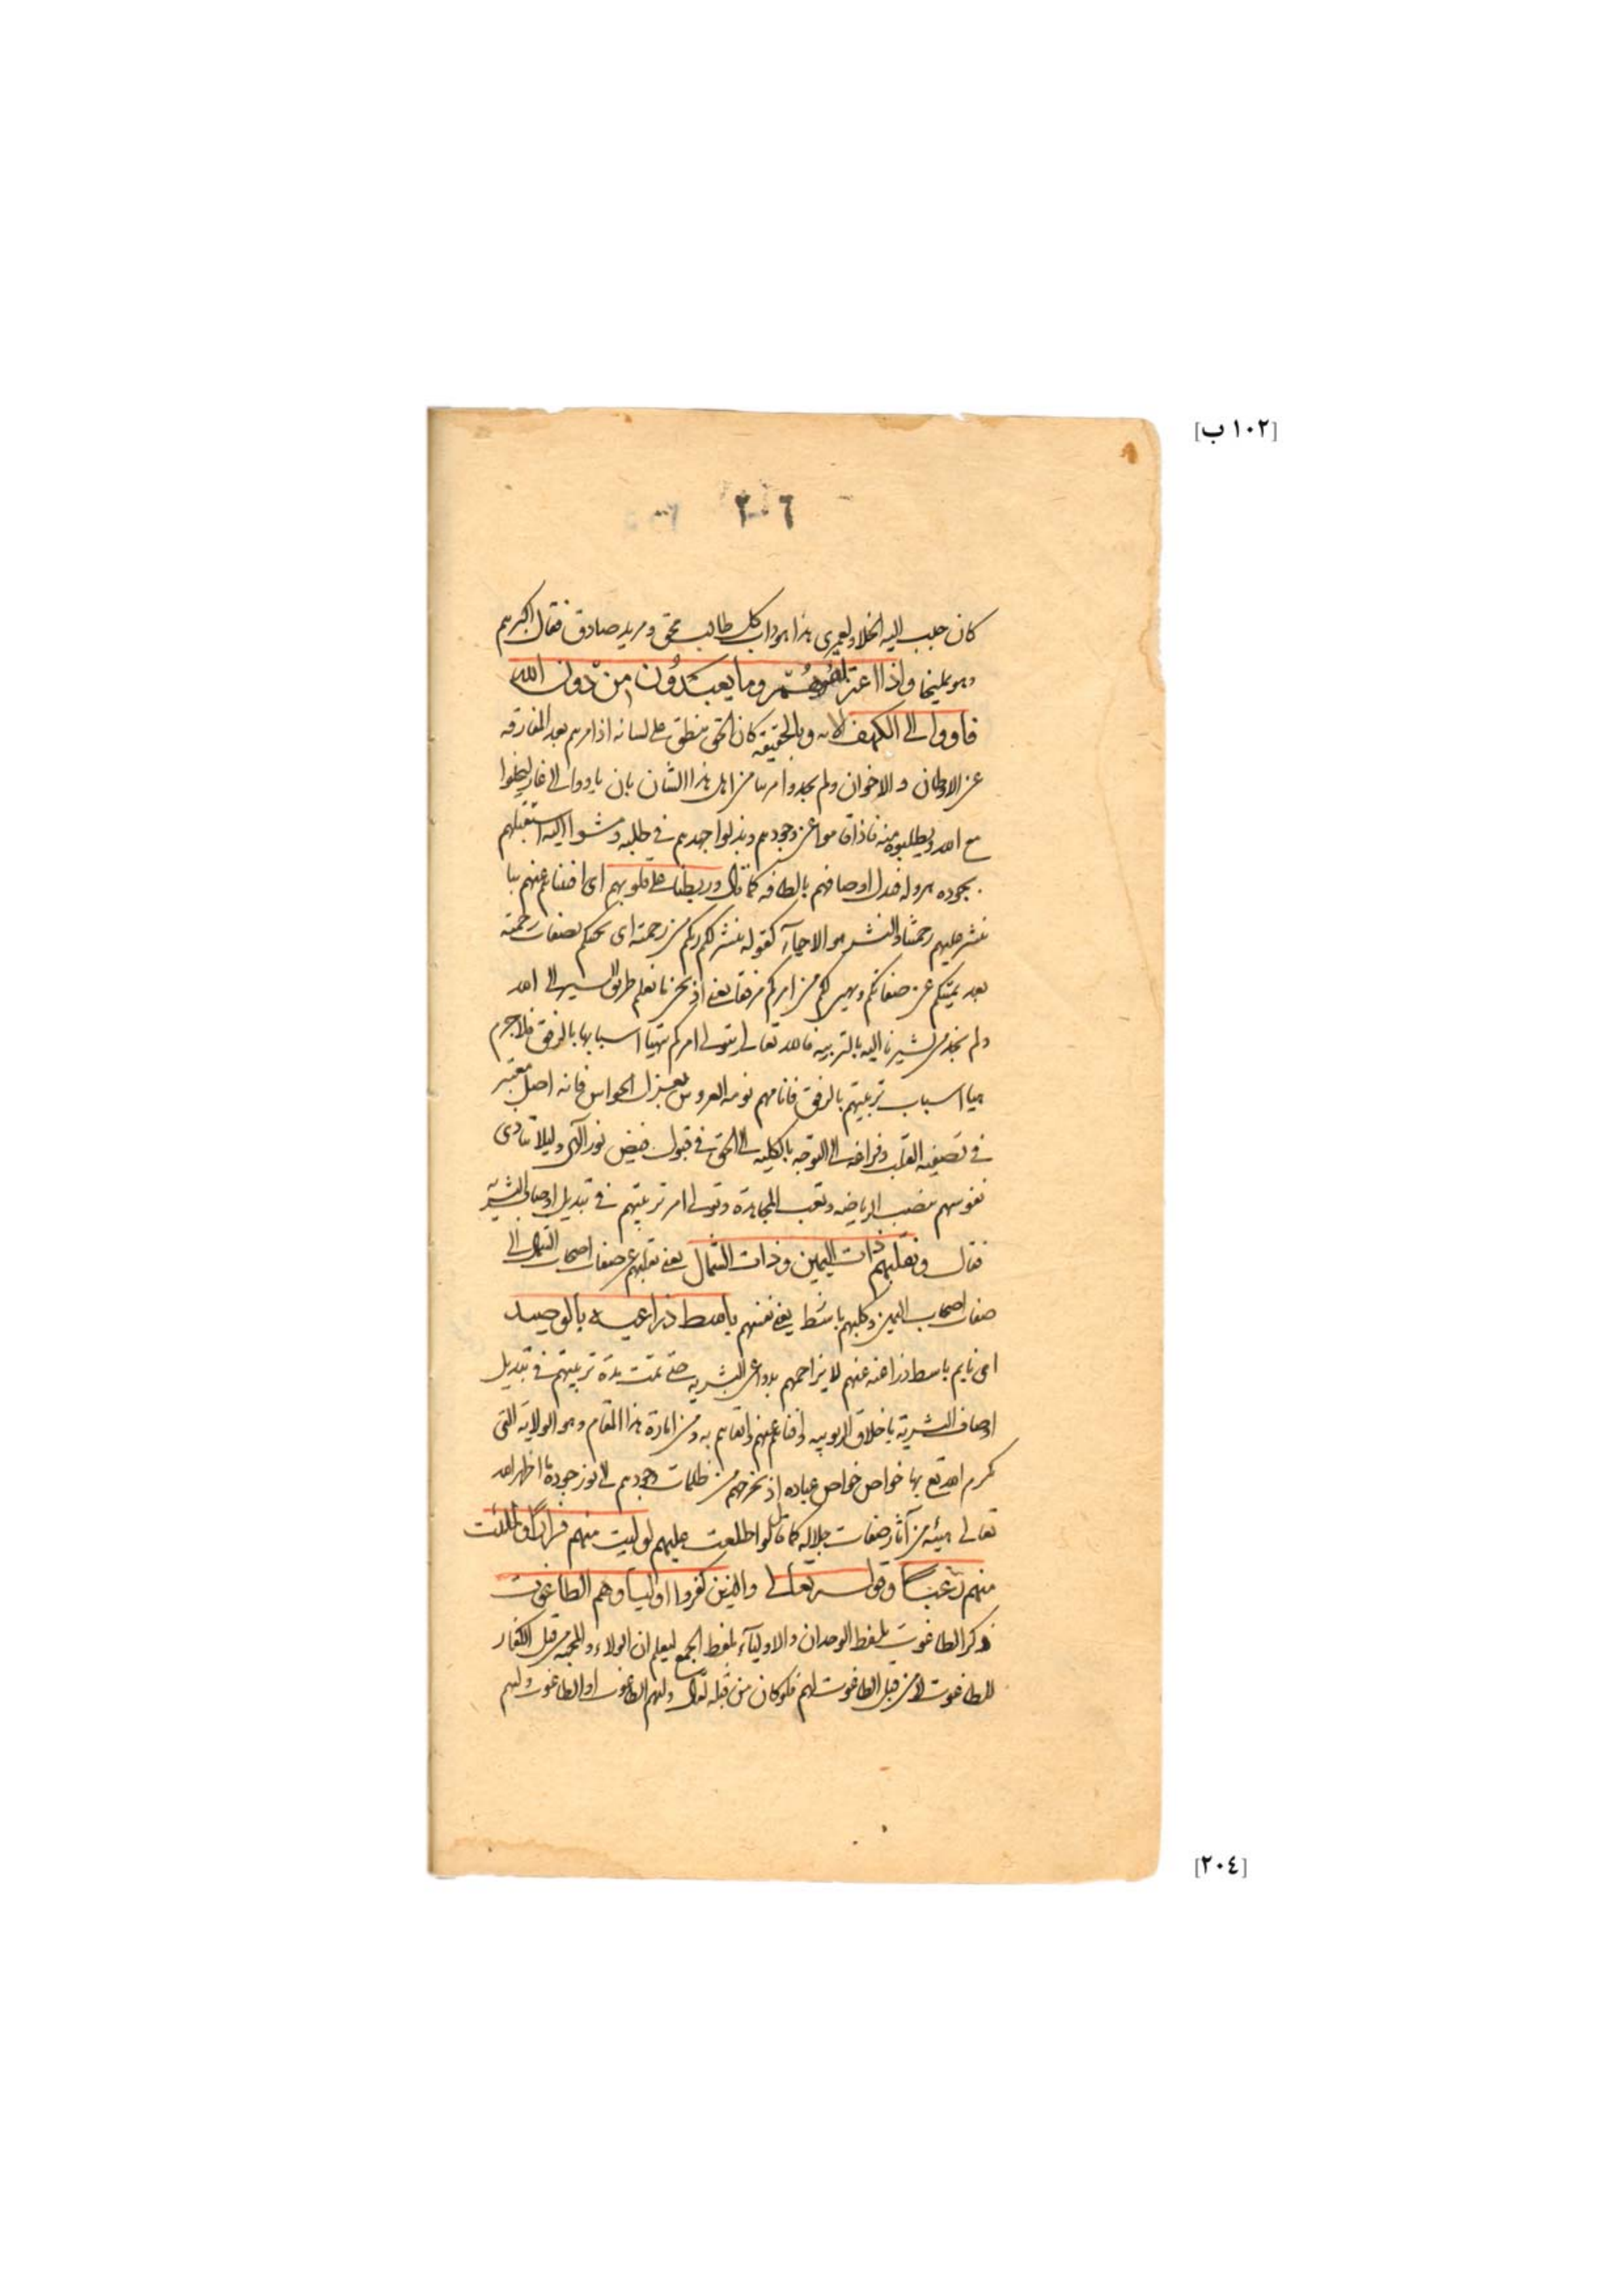 [١٠٢ ب]
٢٠٦
كان حبب اليه الخلا ولعمري هذا هو داب كل طالب محق ومريد صادق فقال اكبرهم
وهو يمليخا واذا اعتزلتموهم وما يعبدون من دون الله
فاووا الى الكهف الايه وبالحقيقه كان الحق ينطق على لسانه اذ امرهم بعد المفارقه
عن الاوطان والاخوان ولم يجدوا مربيا من اهل هذا الشان بان ياووا الى غار ليخلوا
مع الله ويطلبوه منه فاذا وجودهم وبذلوا جهدهم في طلبه ومشوا اليه استقبلهم
بجوده هروله فبدل اوصافهم بالطافه كما قال وربطنا على قلوبهم اى افنناهم عنهم بنا
ننشر عليهم رحمتنا والنشر هو الاحيآء كقوله ينشر لكم ربكم من رحمته اى يحيكم بصفات رحمته
بعد يميتكم عن صفاتكم ويهيى لكم من امركم مرفقا يعني اذ نحن نا نعلم طريق السير الى الله
ولم نجد من يشيرنا اليه بالتربيه فالله تعالى يتولى امركم بتهيا اسبابها بالرفق فلا جرم
هيا اسباب تربيتهم بالرفق فانامهم نومه العروس بعزل الحواس فانه اصل معتبر
في تصفيه القلب وفراغه الى التوجه بالكليه الى الحق في قبول فيض نور الآله وليلا تتاذى
نفوسهم بنصب الرياضه وتعب المجاهدة وتولى امر تربيتهم في تبديل اوصاف البشريه
فقال ونقلبهم ذات اليمين وذات الشمال يعني نقلبهم عن صفات اصحاب الشمال الى
صفات اصحاب اليمين وكلبهم باسط يعني نفسهم باسط ذراعيه بالوصيد
اى نايم باسط ذراعيه عنهم لا يزاحمهم بدواعى البشريه حتى تمت مدة تربيتهم في تبديل
اوصاف البشريه باخلاق الربوبيه وافناهم عنهم وابقاهم به ومن امارة هذا المقام وهو الولايه التي
كرم الله تع بها خواص خواص عباده اذ يخرجهم من ظلمات وجودهم الى نور جوده ما اظهر الله
تعالى هيئه من آثار صفات جلاله كما قال لو اطلعت عليهم لوليت منهم فرارا ولملئت
منهم رعبا وقوله تعالى والذين كفروا اوليآوهم الطاغوت
ذكر الطاغوت بلفظ الوحدان والاوليآء بلفظ الجمع ليعلم ان الولاء والمحبه من قبل الكفار
للطاغوت لا من قبل الطاغوت لهم فلو كان من قبله لقال وليهم الطاغوت او الطاغوت وليهم
[٢٠٤]